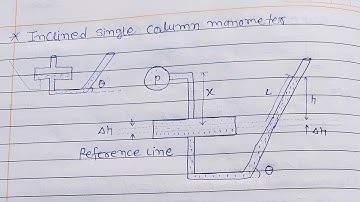 * Inclined single column manometer
θ
P
x
L
h
Δh
Δh
Reference Line
θ